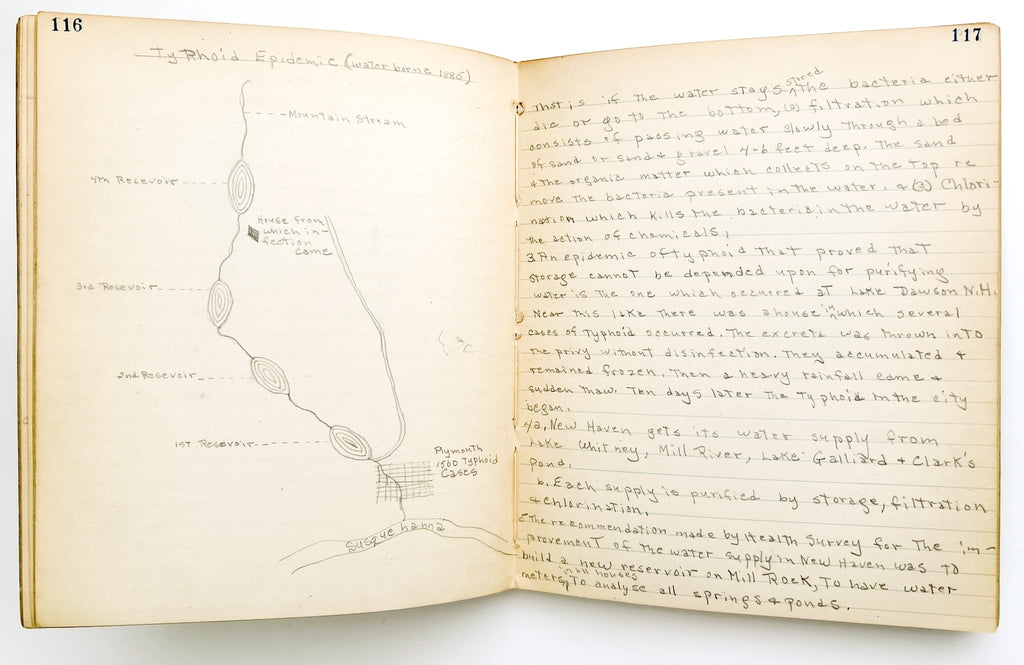 116
Typhoid Epidemic (water borne 1885)
Mountain Stream
4th Reservoir
House from
which in-
fection
came
3rd Reservoir
2nd Reservoir
1st Reservoir
Plymouth
1500 Typhoid
Cases
Susquehanna
117
That is if the water stays stored the bacteria either
die or go to the bottom, (2) filtration which
consists of passing water slowly through a bed
of sand or sand & gravel 4-6 feet deep. The sand
& the organic matter which collects on the top re
move the bacteria present in the water. & (3) Chlori-
nation which kills the bacteria in the water by
the action of chemicals;
3. An epidemic of typhoid that proved that
storage cannot be depended upon for purifying
water is the one which occurred at Lake Dawson N.H.
Near this lake there was a house in which several
cases of typhoid occurred. The excreta was thrown into
the privy without disinfection. They accumulated &
remained frozen. Then a heavy rainfall came &
sudden thaw. Ten days later the typhoid in the city
began.
4a. New Haven gets its water supply from
Lake Whitney, Mill River, Lake Galliard & Clark's
Pond.
b. Each supply is purified by storage, filtration
& chlorination.
5 The recommendation made by Health Survey for the im-
provement of the water supply in New Haven was to
build a new reservoir on Mill Rock, To have water
meters in all houses, To analyse all springs & ponds.